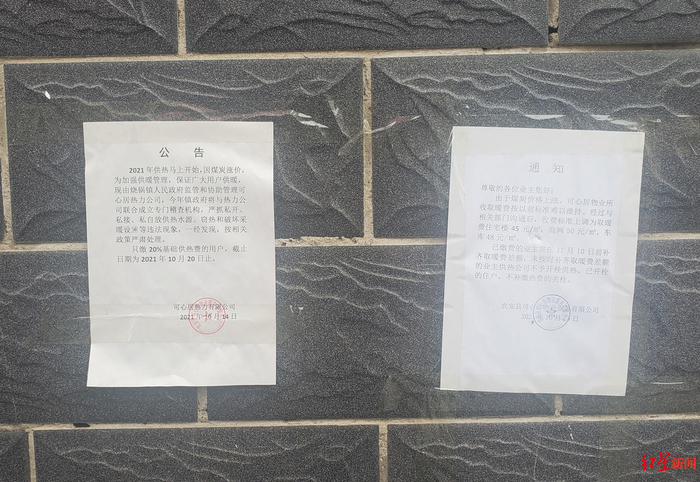 公 告
2021 年供热马上开始，因煤炭涨价，
为加强供暖管理，保证广大用户供暖，
现由烧锅镇人民政府监管和协助管理可
心居热力公司，今年镇政府将与热力公
司联合成立专门稽查机构，严抓私开、
私接、私自放供热水源、窃热和破坏采
暖设施等违法现象，一经发现，按相关
政策严肃处理。
只缴 20%基础供热费的用户，截止
日期为 2021 年 10 月 20 日止。
可心居热力有限公司
2021 年 10 月 14 日
通 知
尊敬的各位业主您好：
由于煤炭价格上涨，可心居物业所
收取暖费按以前标准难以维持，经过与
相关部门沟通后，收费标准上调为取暖
费住宅楼 45 元/㎡，商网 50 元/㎡，车
库 48 元/㎡。
已缴费的业主需在 11 月 10 日前补
齐取暖费差额，未按时补齐取暖费差额
的业主供热公司不予开栓供热，已开栓
的住户，不补缴热费的关栓。
农安县可心
有限公司
红星新闻